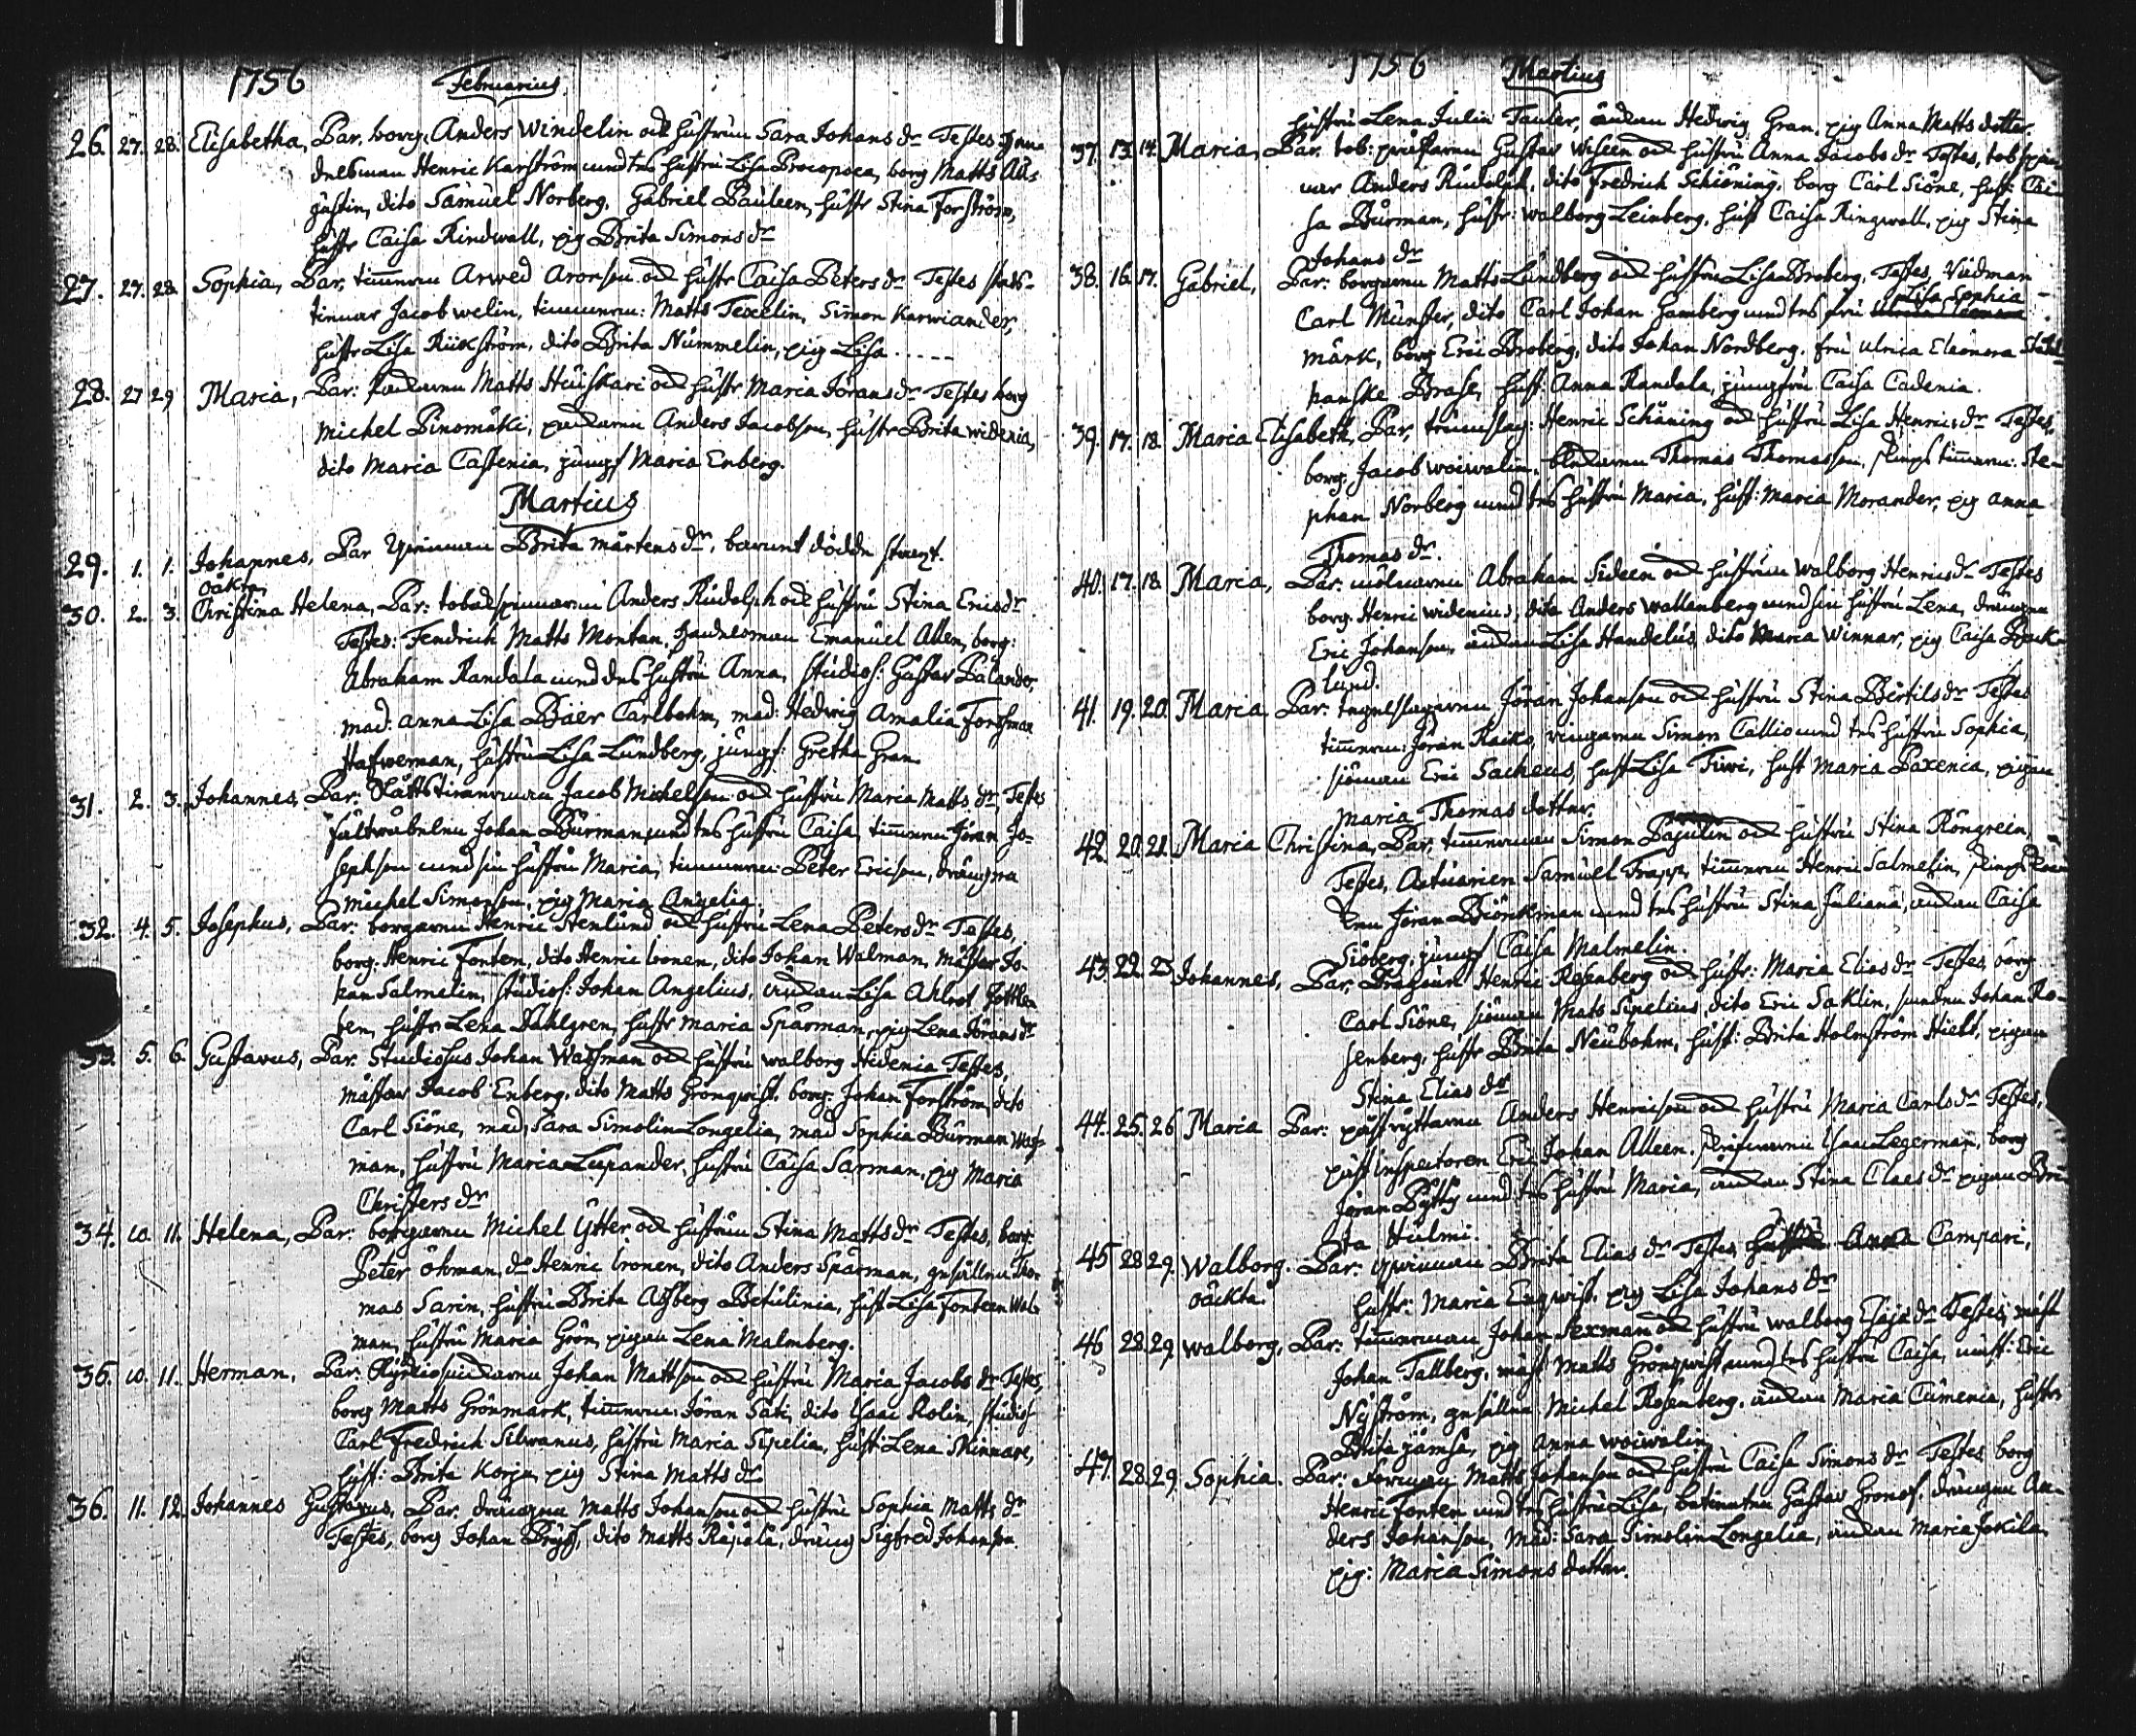 1756 Februarius
26. 27. 28. Elisabetha, Par. borg. Anders Windelin och hustrun Sara Johans dr Testes
Henric Karström med ds hustru Lisa Procopoea, borg Matts Au-
gustin, dito Samuel Norberg, Gabriel Pauleen, hustr Stina Forström,
hustr Caisa Rindwall, pig Brita Simons dr
27. 27. 28. Sophia, Par. timmerm Arwed Aronson och hustr Caisa Peters dr Testes
Jacob Welin, timmerm: Matts Texelin, Simon Karwiander,
hustr Lisa Riikström, dito Brita Nummelin, pig Lisa .....
28. 27 29 Maria, Par: Matts Huiskari och hustr Maria Jörans dr Testes borg
Michel Pinomäki, Anders Jacobson, hustr Brita Widenia,
dito Maria Castenia, jungf Maria Enberg.
Martius
29. 1. 1. Johannes, Par Brita Mårtens dr, barnet dödde straxt.
oäkta
30. 2. 3. Christina Helena, Par: tobakspinnaren Anders Rudolph och hustru Stina Erics dr
Testes: Fendrich Matts Montan, Handelsman Emanuel Allen, borg:
Abraham Randala med ds hustru Anna, studios: Gustav Palander,
mad: Anna Lisa Baer Carlbohm, mad: Hedwig Amalia Forssman
Hafwerman, hustru Lisa Lundberg, jungf: Gretha Gran.
31. 2. 3. Johannes, Par. Jacob Michelson och hustru Maria Matts dr, Testes
fältwäbelen Johan Burman med ds hustru Caisa, timmerm Jöran Jo-
sephson med sin hustru Maria, timmerm: Peter Ericson, drängen
Michel Simonson, pig Maria Angelia.
32. 4. 5. Josephus, Par: borgaren Henric Stenlund och hustru Lena Peters dr Testes,
borg. Henric Fonten, dito Henric Ironen, dito Johan Walman, mäster Jo-
han Salmelin, studios: Johan Angelius, änkan Lisa Ahlrot Jottle-
ben, hustr Lena Dahlgren, hustr Maria Spärman, pig Lena Jörans dr
33. 5. 6. Gustavus, Par. Studiosus Johan Wassman och hustru Walborg Hidenia Testes,
mästar Jacob Enberg, dito Matts Grönqwist, borg. Johan Forström, dito
Carl Siöne, mad. Sara Simolin Longelia, mad Sophia Burman Wass-
man, hustru Maria Lupander, hustru Caisa Sarman, pig Maria
Christers dr
34. 10. 11. Helena, Par: borgaren Michel Ytter och hustrun Stina Matts dr Testes, borg:
Peter Öhman, do Henric Ironen, dito Anders Spärman, gesällen Tho-
mas Sarin, hustru Brita Asberg Betulinia, hust Lisa Fonteen Wal-
man, hustru Maria Grön, pigan Lena Malmberg.
35. 10. 11. Herman, Par. Johan Mattson och hustru Maria Jacobs dr Testes,
borg Matts Grönmark, timmerm: Jöran Sati, dito Isaac Rolin, studios
Carl Fredrich Silwanus, hustru Maria Sipelia, hust: Lena Skinnare,
hust: Brita Korpu, pig Stina Matts dr
36. 11. 12. Johannes Gustavus, Par. drängen Matts Johanson och hustru Sophia Matts dr
Testes, borg Johan Bryss, dito Matts Räpälä, dräng Sigfred Johanson
1756 Martius
hustru Lena Julin Tauler, änkan Hedwig Gran, pig Anna Matts dotter.
37. 13. 14. Maria, Par. tob: Gustav Wiseen och hustru Anna Jacobs dr Testes, tobspin
nar Anders Rudolph, dito Fredrich Schiöning, borg Carl Siöne, hust: Cai-
sa Burman, hustr: Walborg Leinberg, hust Caisa Ringwall, pig Stina
Johans dr
38. 16. 17. Gabriel, Par: borgaren Matts Lundberg och hustru Lisa Broberg, Testes, Rådman
Lisa Sophia
Carl Münster, dito Carl Johan Hamberg med ds fru
märk, borg Eric Broberg, dito Johan Nordberg, fru Ulrica Eleonora
hanske Brase, hust Anna Randala, jungfru Caisa Cadenia.
39. 17. 18. Maria Elisabeth, Par, trumslag: Henric Schöning och hustru Lisa Henrics dr Testes,
borg: Jacob Woiwalin, Thomas Thomasson, timmerm: Ste-
phan Norberg med ds hustru Maria, hust: Maria Morander, pig Anna
Thomas dr.
40. 17. 18. Maria, Par: mölnaren Abraham Sideen och hustrun Walborg Henrics dr Testes
borg: Henric Widenius, dito Anders Wallenberg med sin hustru Lena, drängen
Eric Johanson, änkan Lisa Handelus, dito Maria Winnar, pig Caisa Back-
lund.
41. 19. 20. Maria Par: tegelslagaren Jöran Johanson och hustru Stina Bertils dr Testes
timmerm: Jöran Raiko, Simon Callio med ds hustru Sophia,
sjöman Eric Sacheus, hust Lisa Tiwi, hust Maria Paxenia, pigan
Maria Thomas dotter.
42. 20. 21. Maria Christina, Par, timmerman Simon Pajulin och hustru Stina Röngrein,
Testes, Actuarien Samuel Trapp, timmerm Henric Salmelin,
Jöran Biörkman med ds hustru Stina Juliana, änkan Caisa
Siöberg, jungf Caisa Malmelin.
43. 22. 23 Johannes, Par. Dragoun Henric Rosenberg och hustr: Maria Elias dr Testes, borg
Carl Siöne, sjöman Mats Sipelius, dito Eric Saklin, Johan Ro-
senberg, hustr Brita Neubohm, hust: Brita Holmström Hielt, pigan
Stina Elias dr
44. 25. 26 Maria Par: postryttaren Anders Henricson och hustru Maria Carls dr Testes,
postinspectoren Eric Johan Alleen, Isaac Lagerman, borg
Jöran Pytty med ds hustru Maria, änkan Stina Claes dr pigan Bri-
ta Hulmi.
45 28 29. Walborg. Par: Brita Elias dr Testes, Campari,
oäckta hustr: Maria Enqwist, pig Lisa Johans dr
46 28. 29 Walborg, Par: timmerman Johan Sexman och hustru Walborg Esajæ dr Testes, mäst
Johan Tallberg, mäst Matts Grönqwist med ds hustru Caisa, mäst: Eric
Nyström, gesällen Michel Rosenberg, änkan Maria Cumenia, hustr
Brita Jämsä, pig Anna Woiwalin
47. 28. 29. Sophia. Par: Matts Johanson och hustru Caisa Simons dr Testes borg
Henric Fonten med ds hustru Lisa, betienten Gustav Gronof, drängen An-
ders Johanson, Mad: Sara Simolin Longelia, änkan Maria Jokila
pig: Maria Simons dotter.